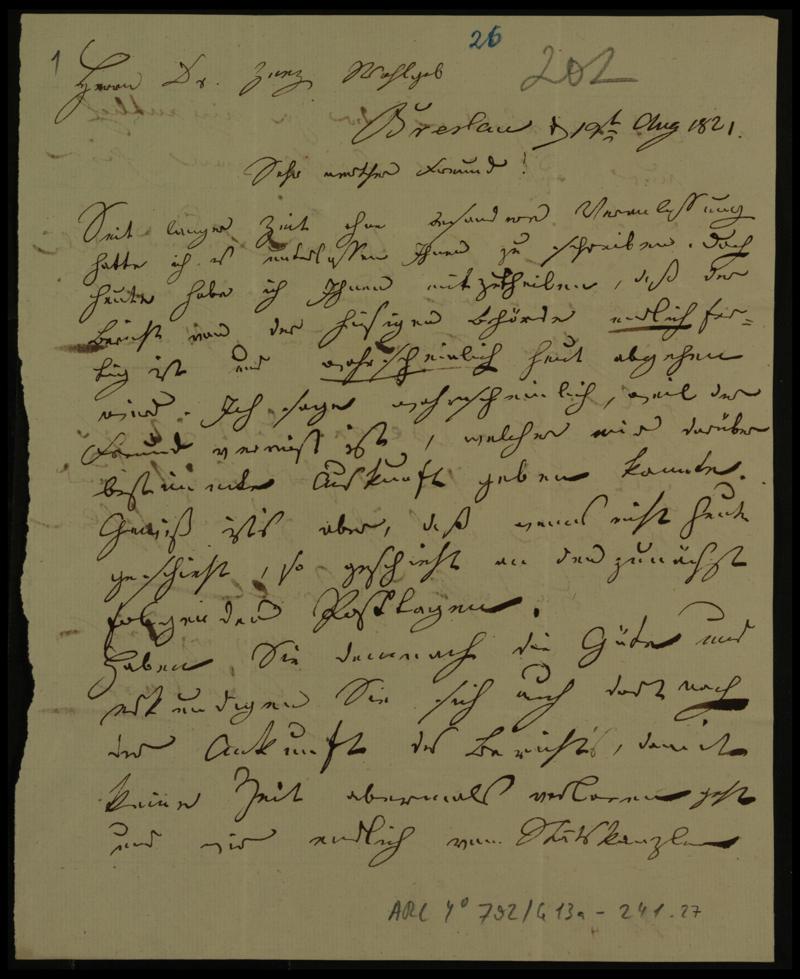 26
1
202
Herrn Dr. Zunz Wohlgeb
Breslau d 19t Aug 1821.
Sehr werther Freund!
Seit langer Zeit ohne besondere Veranlassung
hatte ich es unterlassen Ihnen zu schreiben. Doch
heute habe ich Ihnen mitzutheilen, daß der
Bericht von der hiesigen Behörde endlich fer-
tig ist und wahrscheinlich heut abgehen
wird. Ich sage wahrscheinlich, weil der
Freund verreist ist, welcher mir darüber
bestimmte Auskunft geben konnte.
Gewiß ists aber, daß wenns nicht heute
geschieht, so geschieht an den zunächst
folgenden Posttagen.
Haben Sie demnach die Güte und
erkundigen Sie sich auch dort nach
der Ankunft des Berichts, damit
keine Zeit abermals verloren geht
und wir endlich vom Staatskanzler
ARC 4° 792/G 13a - 241.27